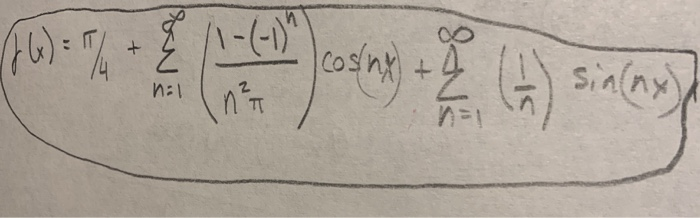 f(x) = π/4 + ∞∑n=1 ((1-(-1)^n)/(n²π)) cos(nx) + ∞∑n=1 (1/n) sin(nx)